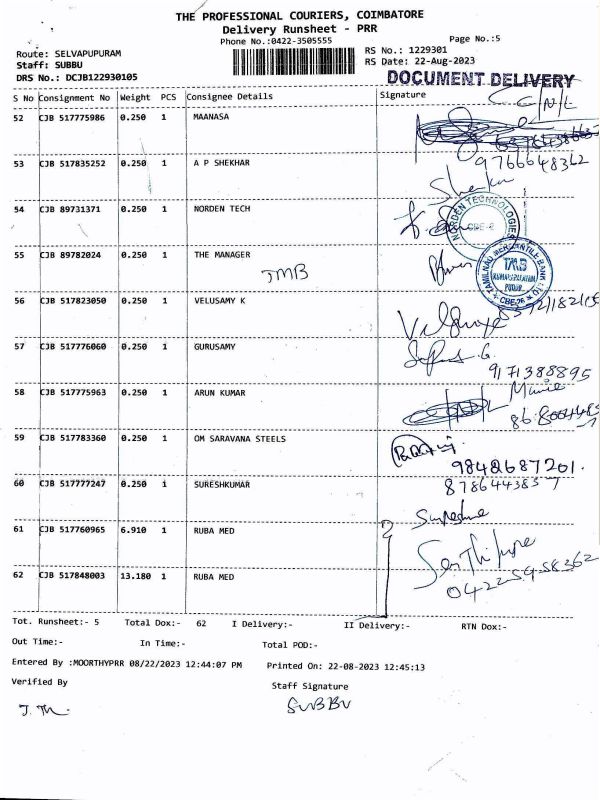 THE PROFESSIONAL COURIERS, COIMBATORE
Delivery Runsheet - PRR
Phone No.:0422-3505555
Page No.:5
Route: SELVAPUPURAM
RS No.: 1229301
Staff: SUBBU
RS Date: 22-Aug-2023
DRS No.: DCJB122930105
DOCUMENT DELIVERY
S No Consignment No Weight PCS Consignee Details Signature
52 CJB 517775986 0.250 1 MAANASA
9766648362
53 CJB 517835252 0.250 1 A P SHEKHAR
54 CJB 89731371 0.250 1 NORDEN TECH
NORDEN TECHNOLOGIES
CBE-2
55 CJB 89782024 0.250 1 THE MANAGER
TMB
TAMILNAD MERCANTILE BANK LTD
TMB
CBE-26
56 CJB 517823050 0.250 1 VELUSAMY K
57 CJB 517776060 0.250 1 GURUSAMY
9171388895
58 CJB 517775963 0.250 1 ARUN KUMAR
59 CJB 517783360 0.250 1 OM SARAVANA STEELS
9842687201.
60 CJB 517777247 0.250 1 SURESHKUMAR
61 CJB 517760965 6.910 1 RUBA MED
62 CJB 517848003 13.180 1 RUBA MED
Tot. Runsheet:- 5 Total Dox:- 62 I Delivery:- II Delivery:- RTN Dox:-
Out Time:- In Time:- Total POD:-
Entered By :MOORTHYPRR 08/22/2023 12:44:07 PM Printed On: 22-08-2023 12:45:13
Verified By
Staff Signature
SUBBU